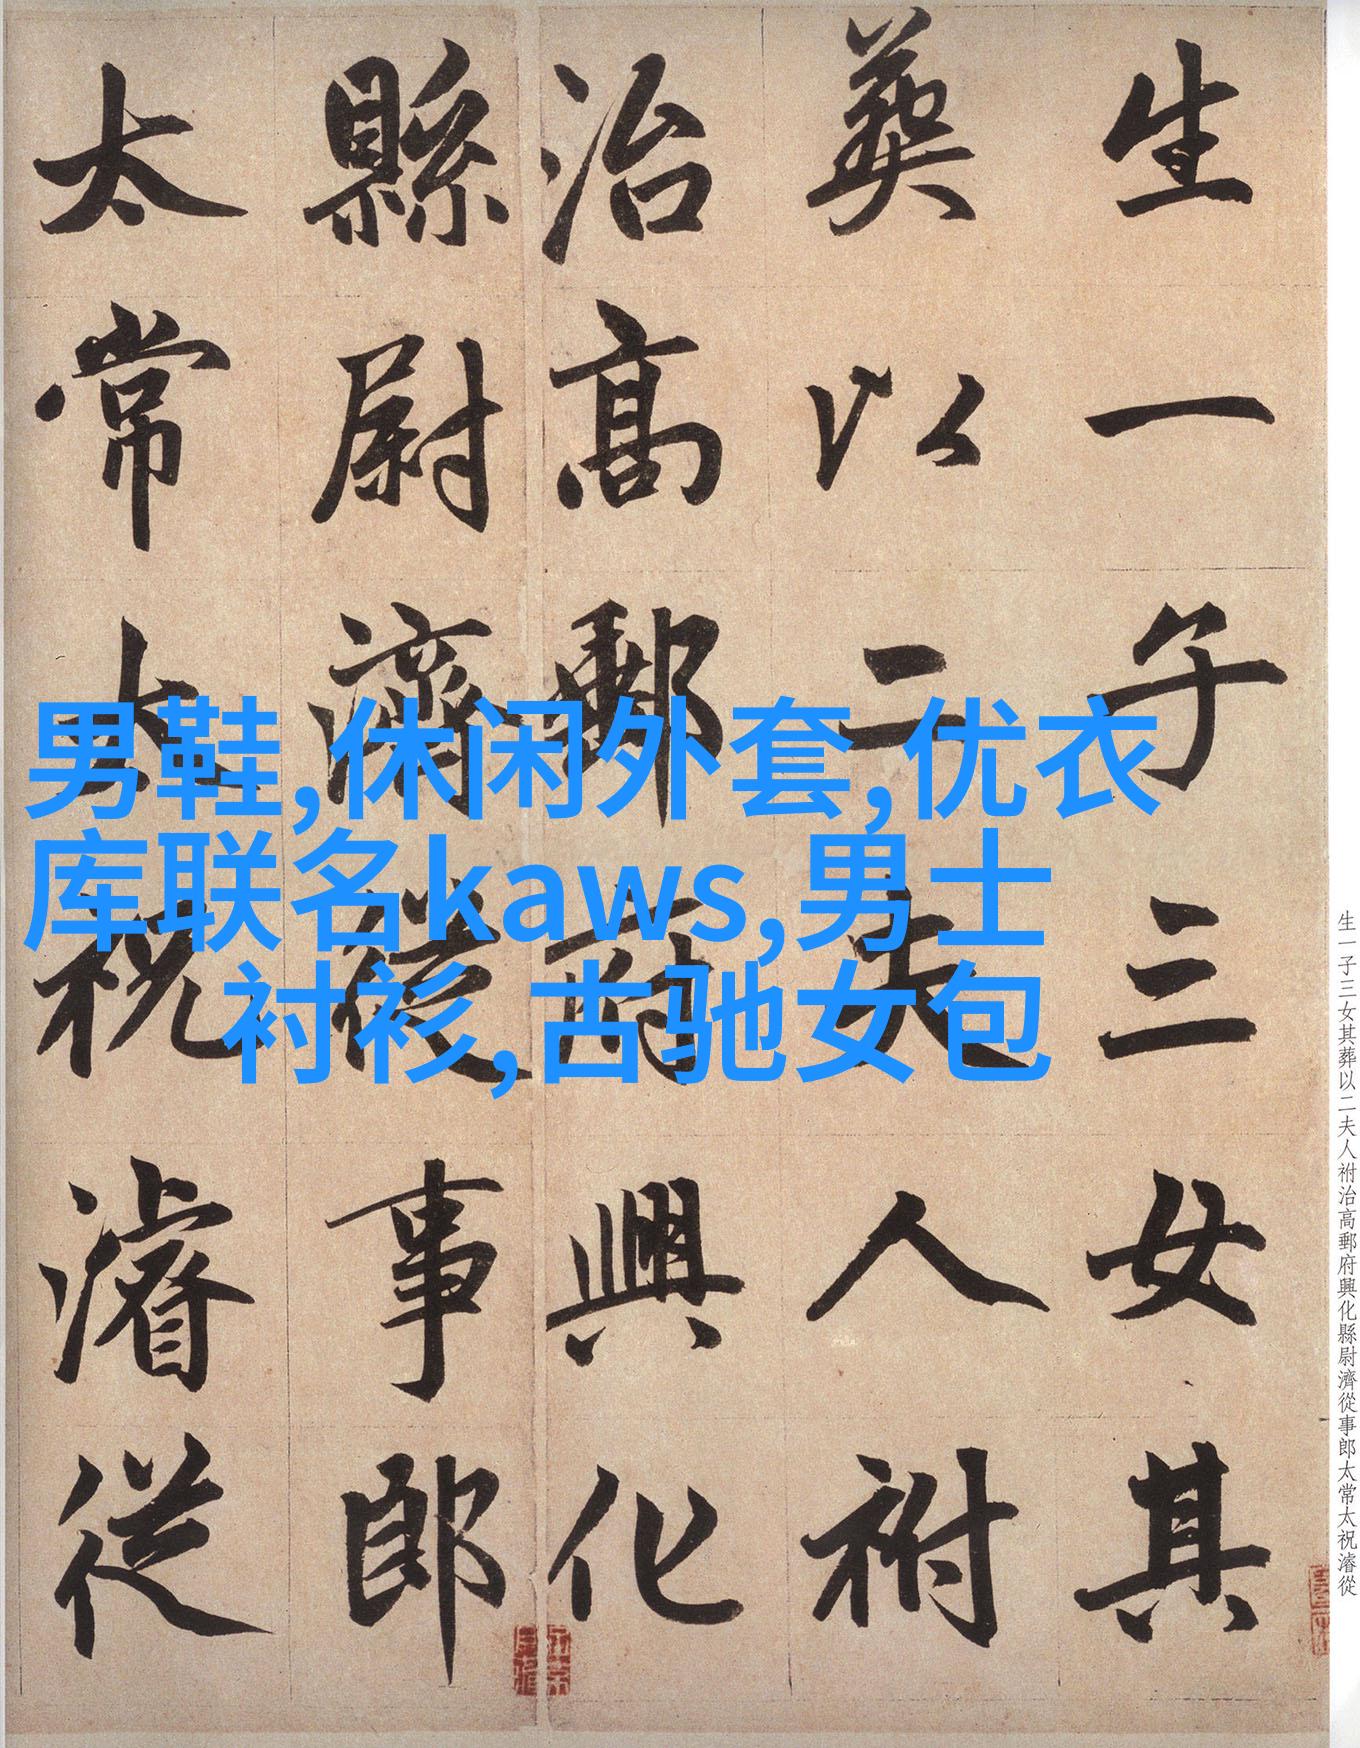 生一子三女其
葬以二夫人祔
治高郵府興化
縣尉濟從事郎
太常太祝濬從
男鞋,休闲外套,优衣
库联名kaws,男士
衬衫,古驰女包
生一子三女其葬以二夫人祔治高郵府興化縣尉濟從事郎太常太祝濬從